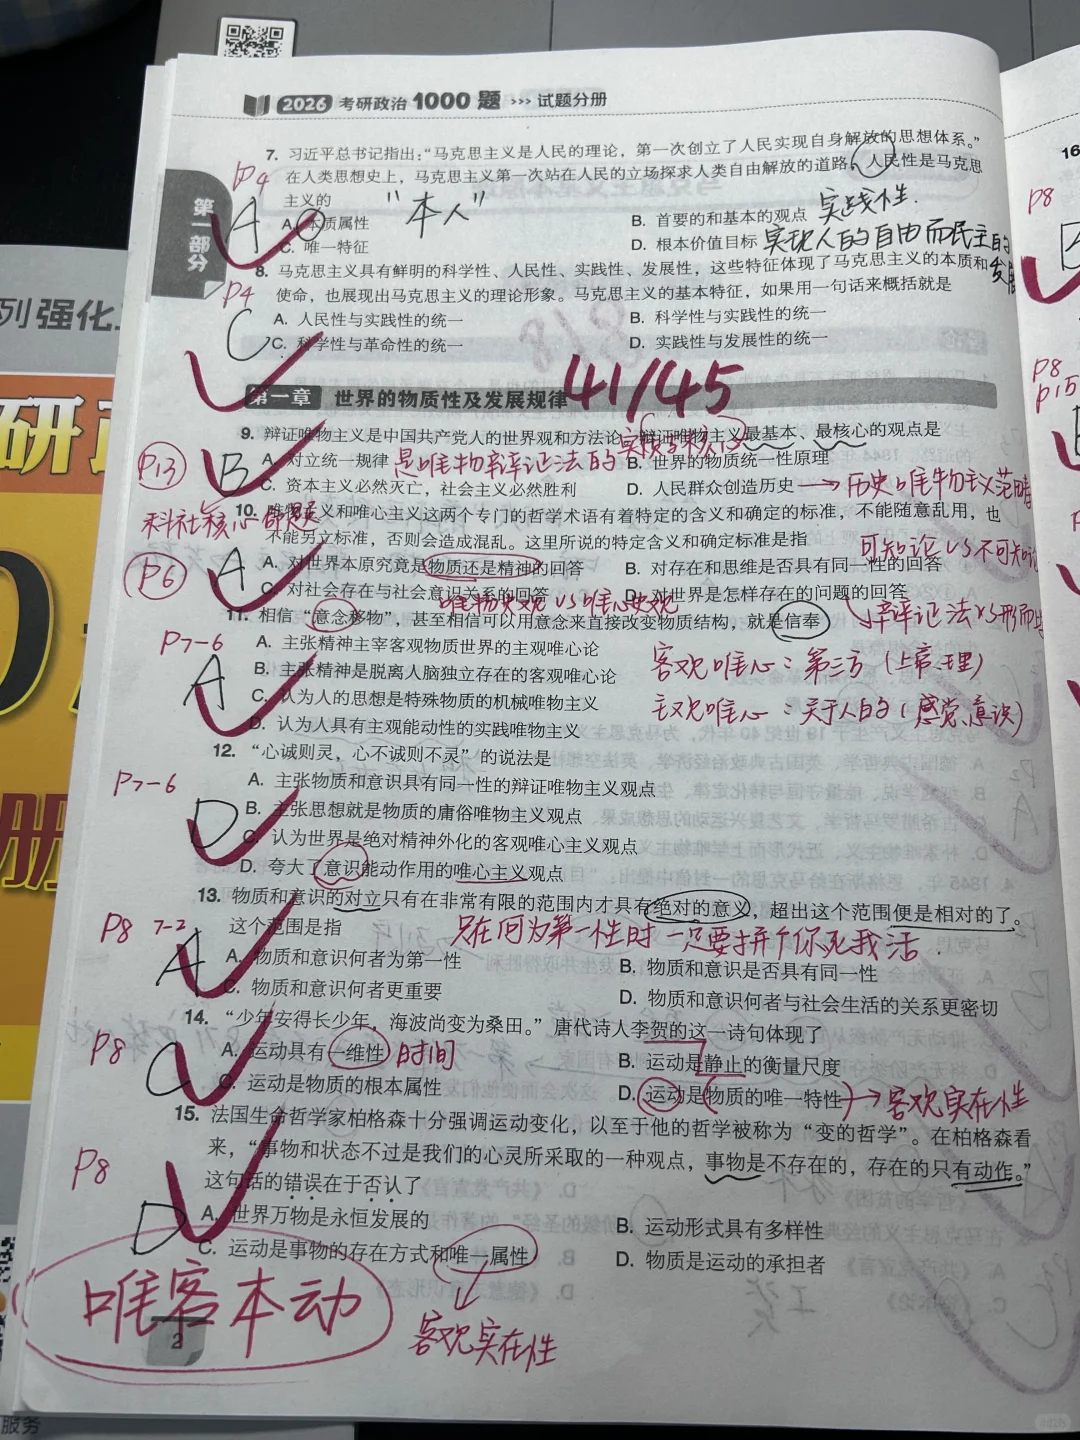 2026 考研政治1000题 >>> 试题分册
第一部分
7. 习近平总书记指出：“马克思主义是人民的理论，第一次创立了人民实现自身解放的思想体系。”
在人类思想史上，马克思主义第一次站在人民的立场探求人类自由解放的道路，人民性是马克思
主义的
P4
A
A. 本质属性
“本人”
B. 首要的和基本的观点
实践性.
C. 唯一特征
D. 根本价值目标
实现人的自由而民主的发展
8. 马克思主义具有鲜明的科学性、人民性、实践性、发展性，这些特征体现了马克思主义的本质和
使命，也展现出马克思主义的理论形象。马克思主义的基本特征，如果用一句话来概括就是
P4
C
A. 人民性与实践性的统一
B. 科学性与实践性的统一
C. 科学性与革命性的统一
D. 实践性与发展性的统一
8/8
第一章 世界的物质性及发展规律
41/45
9. 辩证唯物主义是中国共产党人的世界观和方法论，辩证唯物主义最基本、最核心的观点是
P13
B
A. 对立统一规律
是唯物辩证法的实质与核心
B. 世界的物质统一性原理
C. 资本主义必然灭亡，社会主义必然胜利
D. 人民群众创造历史
→ 历史唯物主义范畴
科社核心命题
10. 唯物主义和唯心主义这两个专门的哲学术语有着特定的含义和确定的标准，不能随意乱用，也
不能另立标准，否则会造成混乱。这里所说的特定含义和确定标准是指
可知论 VS 不可知论
P6
A
A. 对世界本原究竟是物质还是精神的回答
B. 对存在和思维是否具有同一性的回答
C. 对社会存在与社会意识关系的回答
D. 对世界是怎样存在的问题的回答
唯物史观 VS 唯心史观
辩证法VS形而
11. 相信“意念移物”，甚至相信可以用意念来直接改变物质结构，就是信奉
P7-6
A
A. 主张精神主宰客观物质世界的主观唯心论
B. 主张精神是脱离人脑独立存在的客观唯心论
C. 认为人的思想是特殊物质的机械唯物主义
D. 认为人具有主观能动性的实践唯物主义
客观唯心：第三方（上帝、理）
主观唯心：关于人的（感觉、意识）
12. “心诚则灵，心不诚则不灵”的说法是
P7-6
D
A. 主张物质和意识具有同一性的辩证唯物主义观点
B. 主张思想就是物质的庸俗唯物主义观点
C. 认为世界是绝对精神外化的客观唯心主义观点
D. 夸大了意识能动作用的唯心主义观点
13. 物质和意识的对立只有在非常有限的范围内才具有绝对的意义，超出这个范围便是相对的了。
这个范围是指
P8 7-2
A
只在何为第一性时 一定要拼个你死我活
A. 物质和意识何者为第一性
B. 物质和意识是否具有同一性
C. 物质和意识何者更重要
D. 物质和意识何者与社会生活的关系更密切
14. “少年安得长少年，海波尚变为桑田。”唐代诗人李贺的这一诗句体现了
P8
C
A. 运动具有一维性
时间
B. 运动是静止的衡量尺度
C. 运动是物质的根本属性
D. 运动是物质的唯一特性
→ 客观实在性
15. 法国生命哲学家柏格森十分强调运动变化，以至于他的哲学被称为“变的哲学”。在柏格森看
来，“事物和状态不过是我们的心灵所采取的一种观点，事物是不存在的，存在的只有动作。”
这句话的错误在于否认了
P8
D
A. 世界万物是永恒发展的
B. 运动形式具有多样性
C. 运动是事物的存在方式和唯一属性
D. 物质是运动的承担者
客观实在性
唯客本动
2
16
P8
P8
P15
列强化
研
册
服务